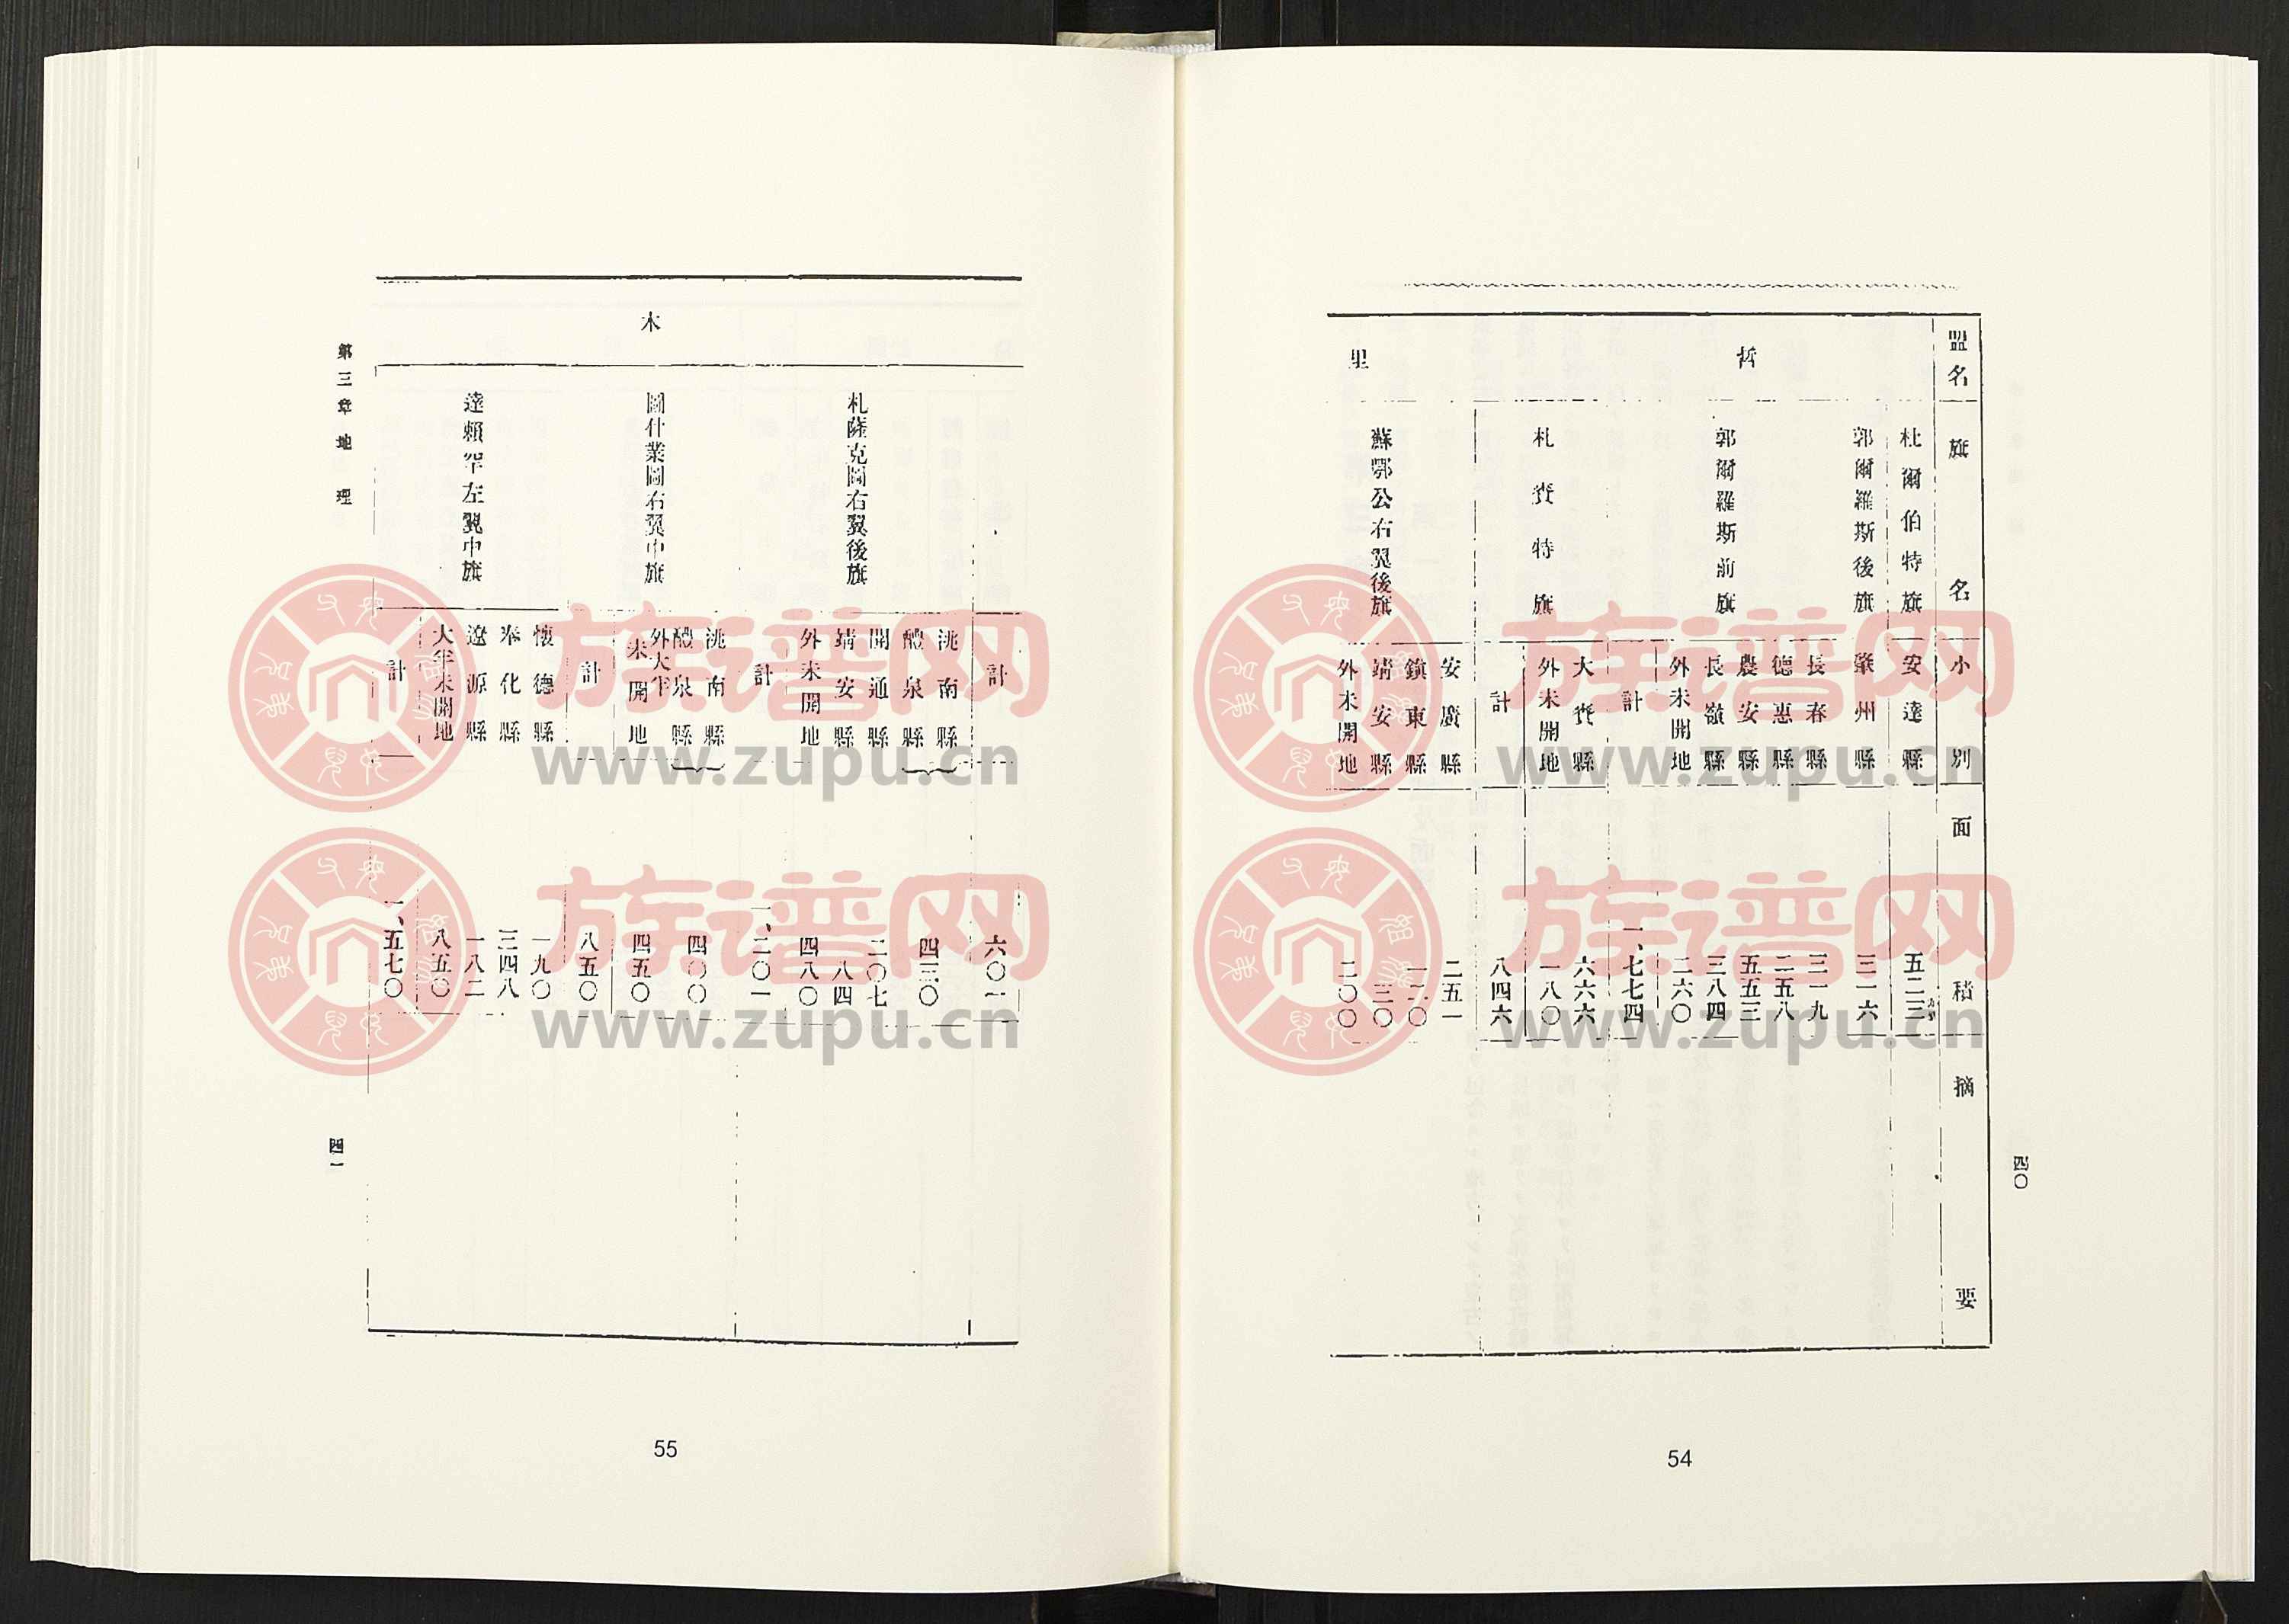 四〇
盟名 旗名 小別 面積 摘要
哲
里
杜爾伯特旗 安達縣 五二三
郭爾羅斯後旗 肇州縣 三一六
郭爾羅斯前旗
長春縣 三一九
德惠縣 二五八
農安縣 五五三
長嶺縣 三八四
外未開地 二六〇
計 一、七七四
札賚特旗
大賚縣 六六六
外未開地 一八〇
計 八四六
蘇鄂公右翼後旗
安廣縣 二五一
鎭東縣 一二〇
靖安縣 三〇
外未開地 二〇〇
54
木
計 六〇一
札薩克圖右翼後旗
洮南縣
醴泉縣 四三〇
開通縣 二〇七
靖安縣 八四
外未開地 四八〇
計 一、二〇一
圖什業圖右翼中旗
洮南縣
醴泉縣 四〇〇
外大半未開地 四五〇
計 八五〇
達賴罕左翼中旗
懷德縣 一九〇
奉化縣 三四八
遼源縣 一八二
大半未開地 八五〇
計 一、五七〇
第三章 地理
四一
55
族谱网
www.zupu.cn
族谱网
www.zupu.cn
族谱网
www.zupu.cn
族谱网
www.zupu.cn